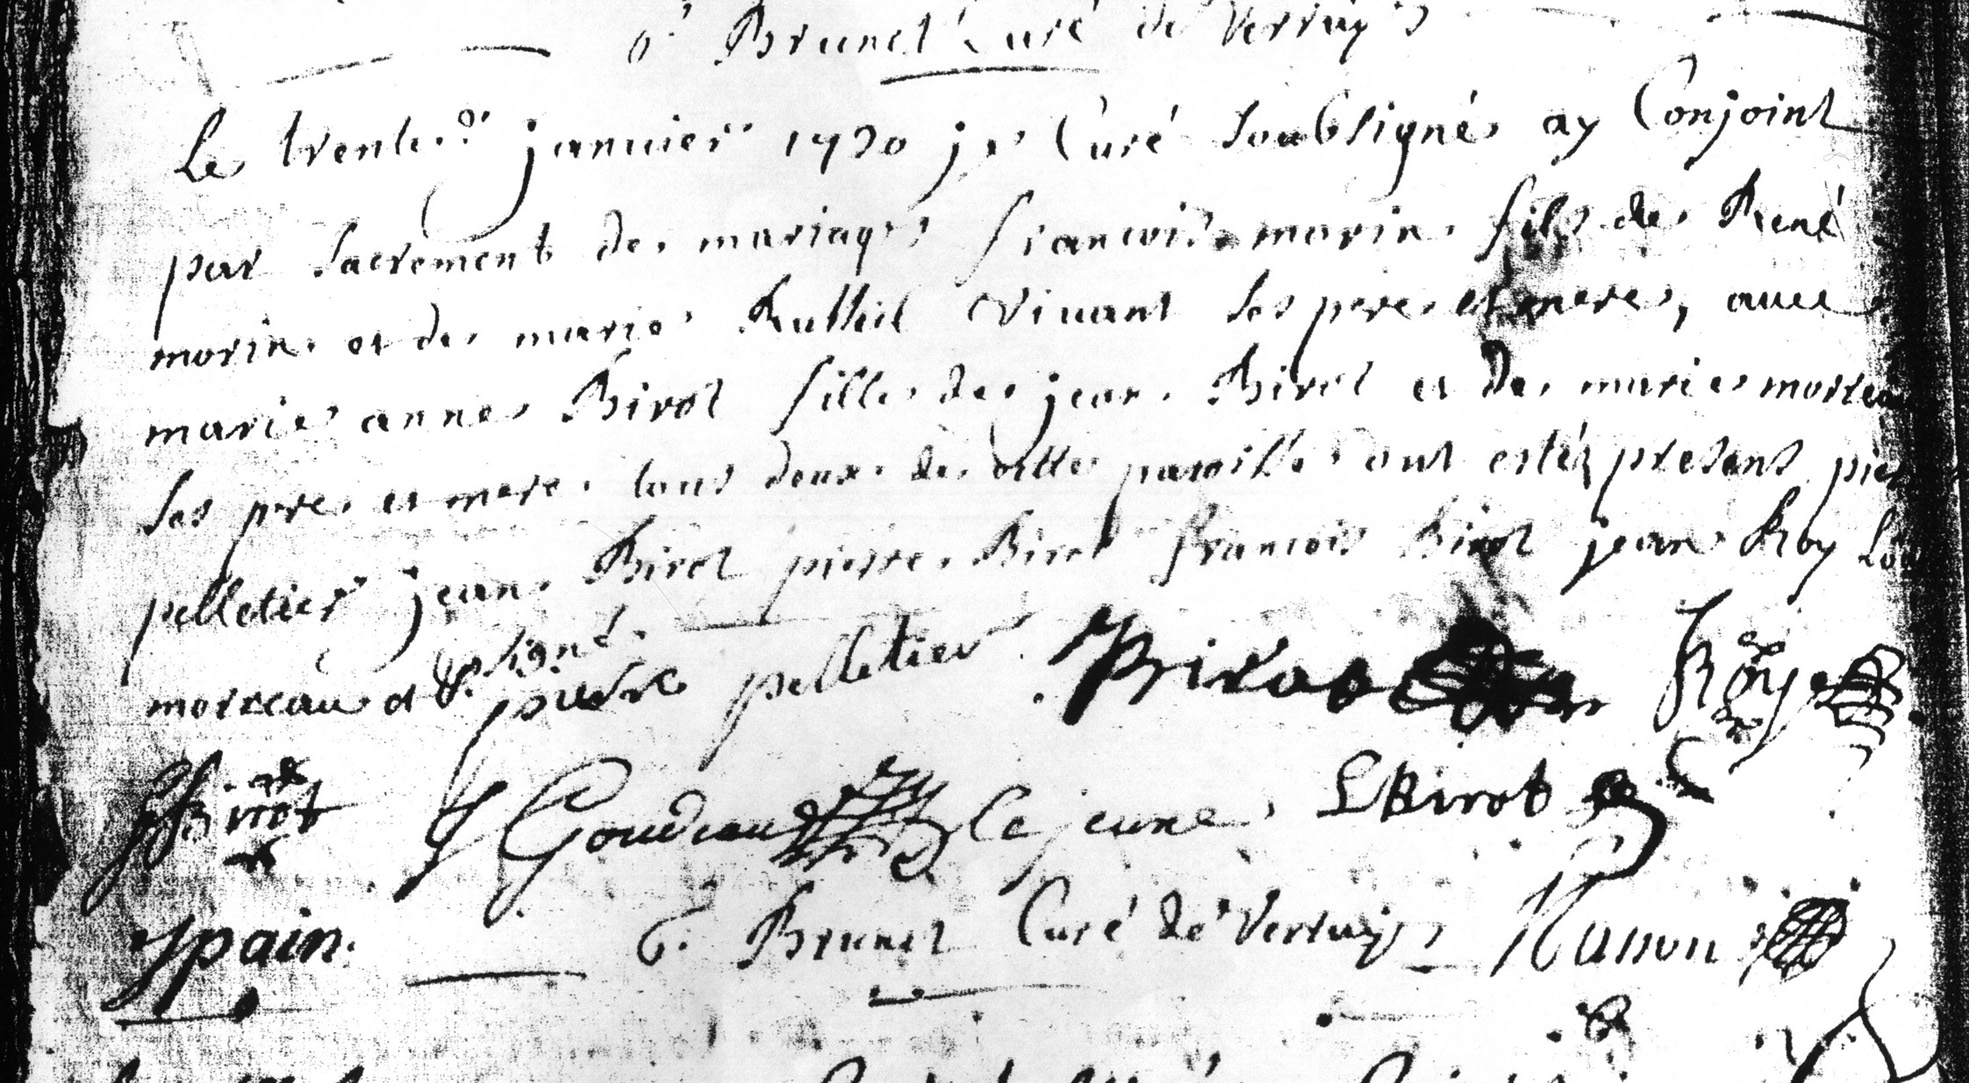 G. Brunet Curé de Verruys
Le trente janvier 1730 je Curé soubsigné ay Conjoint
par sacrement de mariage francois morin fils de René
morin et de marie vivant ses pere et mere, avec
marie anne Birot fille de jean Birot et de marie
ses pere et mere tous deux de cette paroisse ont estéz presens
pelletier jean Birot pierre Birot francois Birot jean Roy
moreau et signé
pierre pelletier Birot Roy
Birot J Goudeau le jeune L Birot
G. Brunet Curé de Verruys
pain